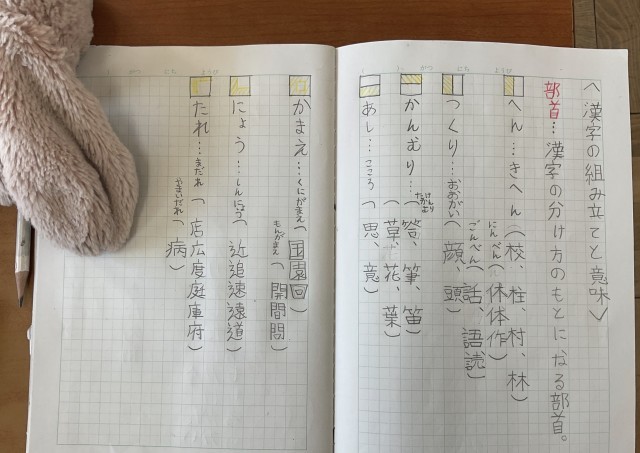 〈漢字の組み立てと意味〉
部首…漢字の分け方のもとになる部首。
へん…きへん(校、柱、村、林)
にんべん(休体作)
ごんべん(話、語読)
つくり…おおがい(顔、頭)
かんむり…たけかんむり(答、筆、笛)
(草、花、葉)
あし…こころ(思、意)
かまえ…くにがまえ(国園回)
もんがまえ(開間問)
にょう…しんにょう(近追速遠道)
たれ…まだれ(店広度庭庫府)
やまいだれ(病)